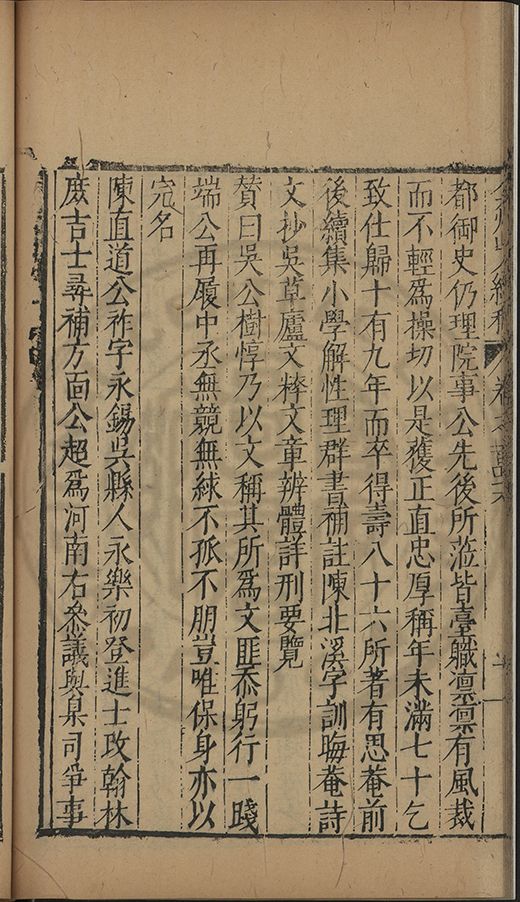 都御史仍理院事公先後所蒞皆臺職凛凛有風裁
而不輕爲操切以是獲正直忠厚稱年未滿七十乞
致仕歸十有九年而卒得壽八十六所著有思菴前
後續集小學解性理群書補註陳北溪字訓晦菴詩
文抄吳草廬文粹文章辨體詳刑要覽
贊曰吳公樹惇乃以文稱其所爲文匪忝躬行一踐
端公再履中丞無競無絿不孤不朋豈唯保身亦以
完名
陳直道公祚字永錫吳縣人永樂初登進士改翰林
庶吉士尋補方面公超爲河南右叅議與臬司爭事